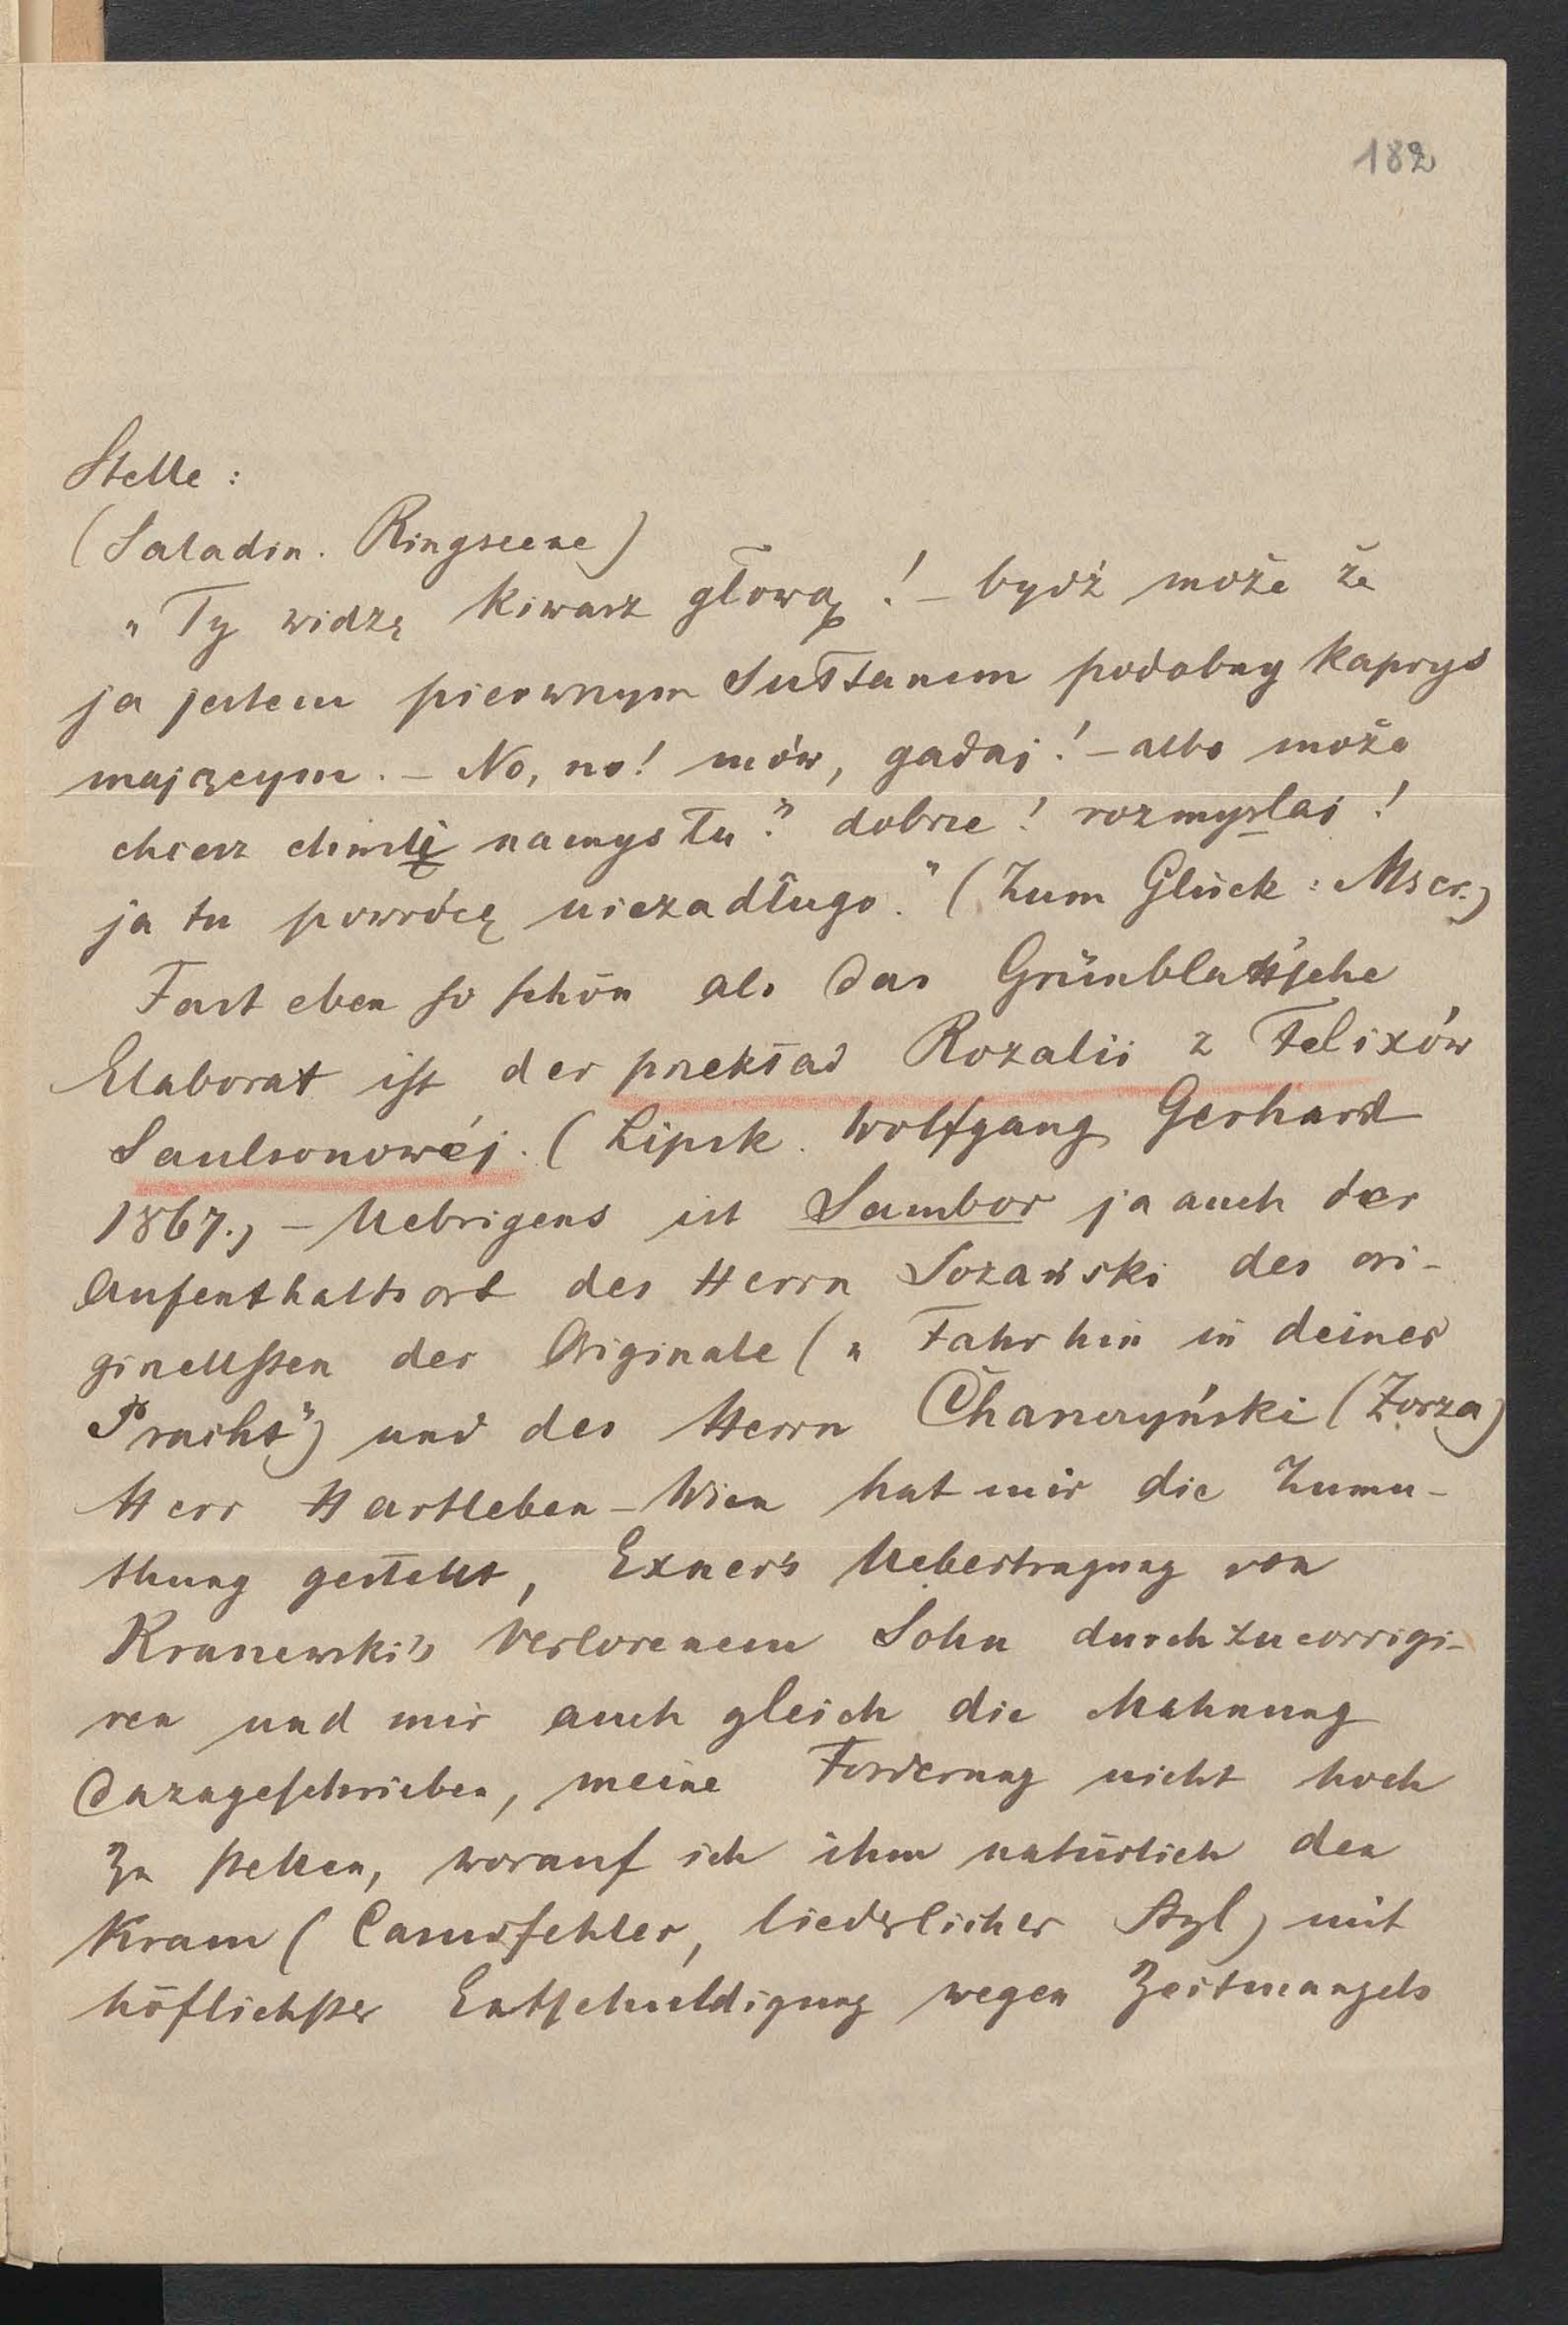 182
Stelle:
(Saladin. Ringscene)
„Ty widzę kiwasz głową! – bydź może że
ja jestem pierwszym Sułtanem podobny kaprys
mającym. – No, no! mów, gadaj! – albo może
chcesz chwilę namysłu? dobrze! rozmyślaj!
ja tu powrócę niezadługo." (Zum Glück: Mscr.)
Fast eben so schön als das Grünblatt'sche
Elaborat ist der przekład Rozalii z Felixów
Saulsonowéj. (Lipsk. Wolfgang Gerhard
1867.) – Uebrigens ist Sambor ja auch der
Aufenthaltsort des Herrn Sozański des ori-
ginellsten der Originale („Fahr hin in deiner
Pracht") und des Herrn Chanczyński (Zorza)
Herr Hartleben – Wien hat mir die Zumu-
thung gestellt, Exner's Uebertragung von
Kranewski's Verlorenem Sohn durchzucorrigi-
ren und mir auch gleich die Mahnung
dazugeschrieben, meine Forderung nicht hoch
zu stellen, worauf ich ihm natürlich den
Kram (Casusfehler, liederlicher Styl) mit
höflichster Entschuldigung wegen Zeitmangels